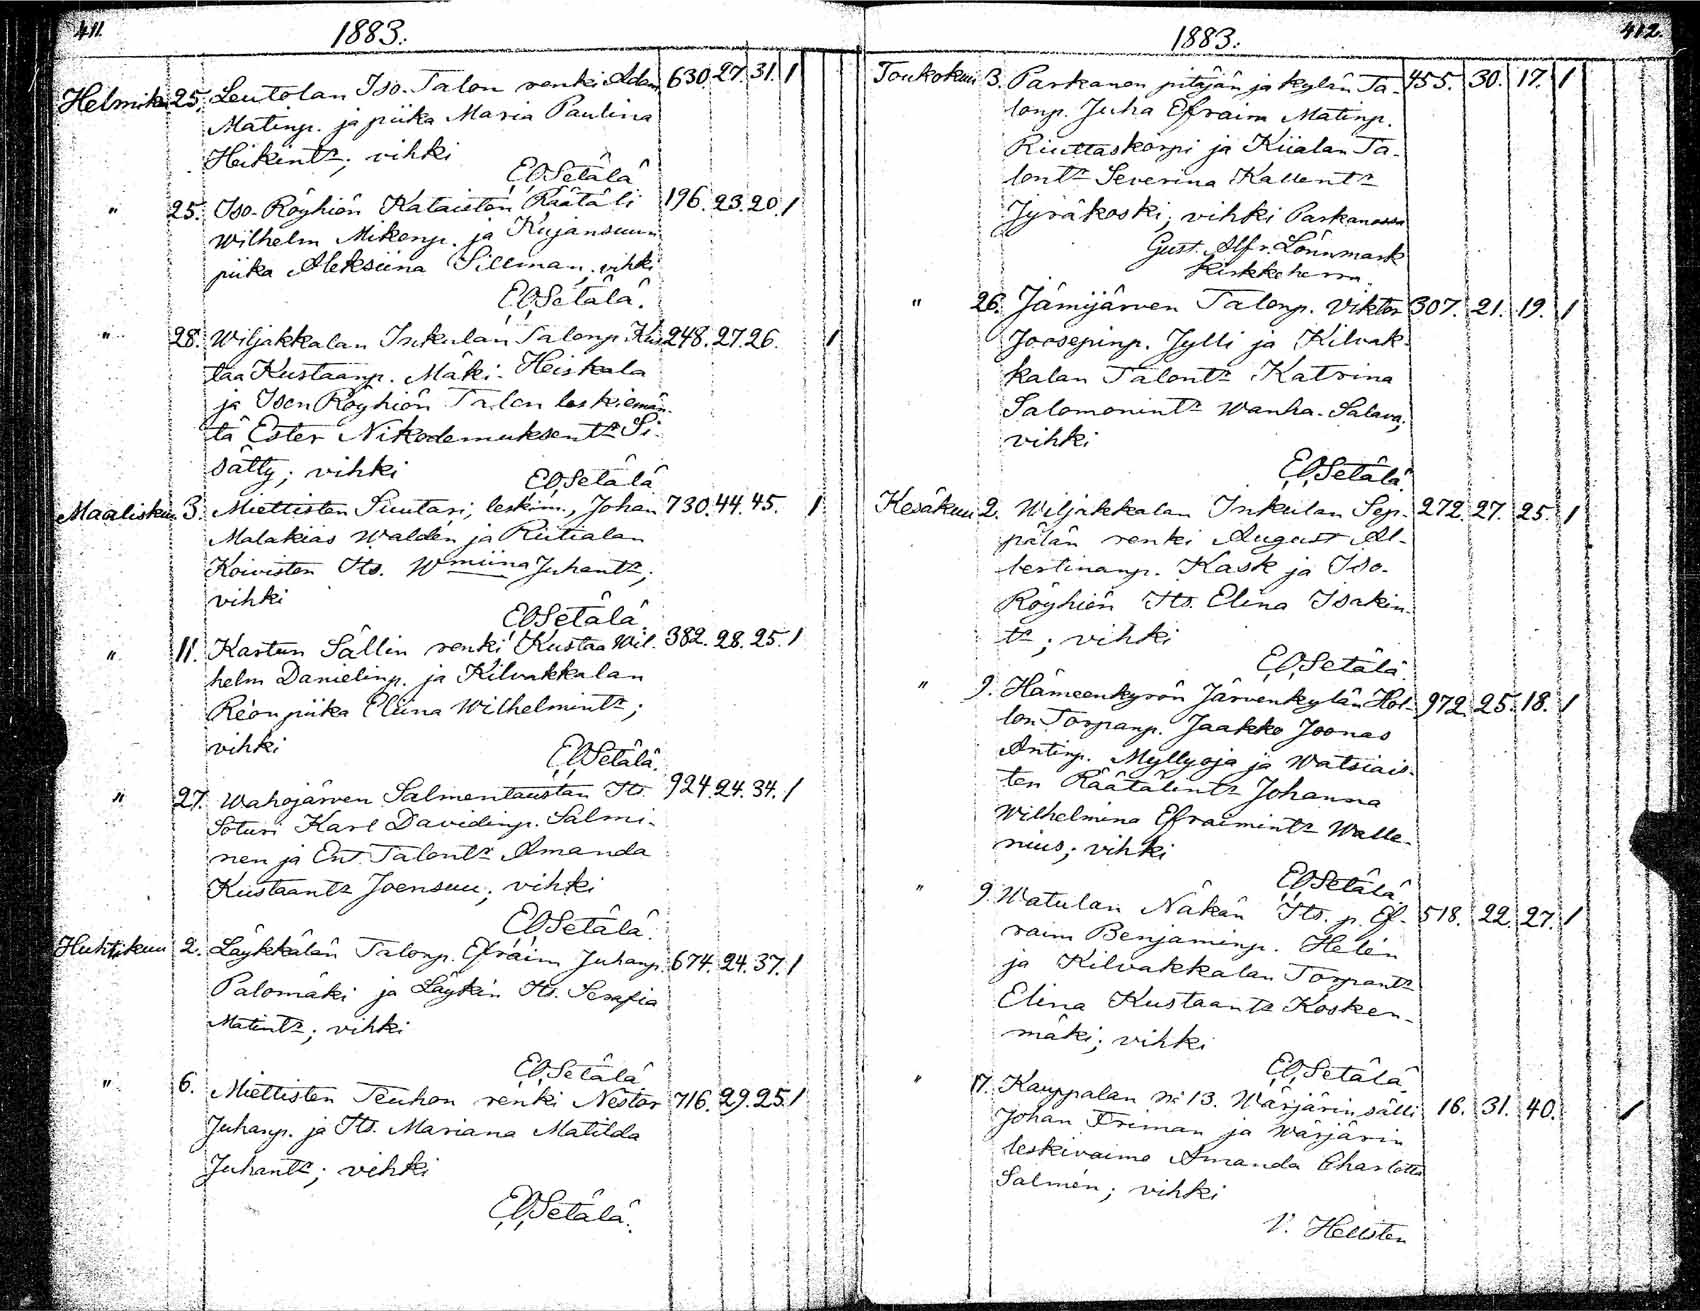 411.
1883.
Helmik. 25. Leutolan Iso-Talon renki Adam 630. 27. 31. 1
Matinp. ja piika Maria Paulina
Heikint:r; vihki
E O Setälä
" 25. Iso-Röyhiön Kataiston Räätäli 196. 23. 20. 1
Wilhelm Mikonp. ja Kujansuun
piika Aleksiina Sillman, vihki
E O Setälä.
" 28. Wiljakkalan Inkulan Talonp. Kus 248. 27. 26. 1
taa Kustaanp. Mäki-Heiskala
ja Ison Röyhiön Talon leskiemän-
tä Ester Nikodemuksent:r Si-
sätty; vihki
E O Setälä
Maaliskuu 3. Miettisten Suutari, leskim., Johan 730. 44. 45. 1
Malakias Waldén ja Riitialan
Koiviston Its. Wmiina Juhant:r;
vihki
E O Setälä.
" 11. Kartun Sällin renki Kustaa Wil- 382. 28. 25. 1
helm Danielinp. ja Kilvakkalan
piika Eliina Wilhelmint:r;
vihki
E O Setälä.
" 27. Wahojärven Salmentaustan Its. 924. 24. 34. 1
Soturi Karl Davidinp. Salmi-
nen ja Ent. Talont:r Amanda
Kustaant:r Joensuu; vihki
E O Setälä.
Huhtikuu 2. Läykkälän Talonp. Efraim Juhanp. 674. 24. 37. 1
Palomäki ja Läykin Its. Serafia
Matint:r; vihki
E O Setälä
" 6. Miettisten Teuhon renki Nestor 716. 29. 25. 1
Juhanp. ja Its. Mariana Matilda
Juhant:r; vihki
E O Setälä.
412.
1883.
Toukokuu 3. Parkanon pitäjän ja kylän Ta- 455. 30. 17. 1
lonp. Juha Efraim Matinp.
Riuttaskorpi ja Kiialan Ta-
lont:r Severina Kallent:r
Jyräkoski; vihki Parkanossa
Gust. Alfr. Lönnmark
Kirkkoherra.
" 26. Jämijärven Talonp. Viktor 307. 21. 19. 1
Joosepinp. Jylli ja Kilvak-
kalan Talont:r Katrina
Salomonint:r Wanha-Salava;
vihki
E O Setälä.
Kesäkuu 2. Wiljakkalan Inkulan Sep- 272. 27. 25. 1
pälän renki August Al-
bertinanp. Kask ja Iso-
Röyhiön Its. Elina Isakin
t:r; vihki
E O Setälä.
" 9. Hämeenkyrön Järvenkylän Hol- 972. 25. 18. 1
lon Torpanp. Jaakko Joonas
Antinp. Myllyoja ja Watsiais-
ten Räätälint:r Johanna
Wilhelmina Efraimint:r Walle-
nius; vihki
E O Setälä
" 9. Watulan Näkän Its. p. Ef- 518. 22. 27. 1
raim Benjaminp. Helén
ja Kilvakkalan Torpant:r
Elina Kustaant:r Kosken-
mäki; vihki
E O Setälä
" 17. Kauppalan N:o 13. Wärjärinsälli 16. 31. 40. 1
Johan Friman ja Wärjärin
leskivaimo Amanda Charlotta
Salmén; vihki
V. Hellsten